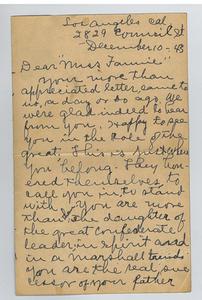 Los Angeles Cal
2829 Council St
December 10 - 43
Dear "Miss Fannie"
Your more than
appreciated letter, came to
us, a day or so ago. We
were glad indeed to hear
from you, Happy to see
you in the role of the
great. This is just where
you belong. They hon-
ored themselves, to
call you in, to stand
with. You are more
than the daughter of
the great confederate
leader, in spirit and
in a marshall
you are the real suc-
cessor of your father